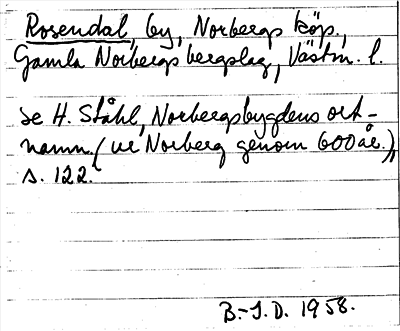 Rosendal, by, Norbergs köp.,
Gamla Norbergs bergslag, Västm. l.
se H. Ståhl, Norbergsbygdens ort-
namn. (ur Norberg genom 600 år.),
s. 122.
B.-S.D. 1958.